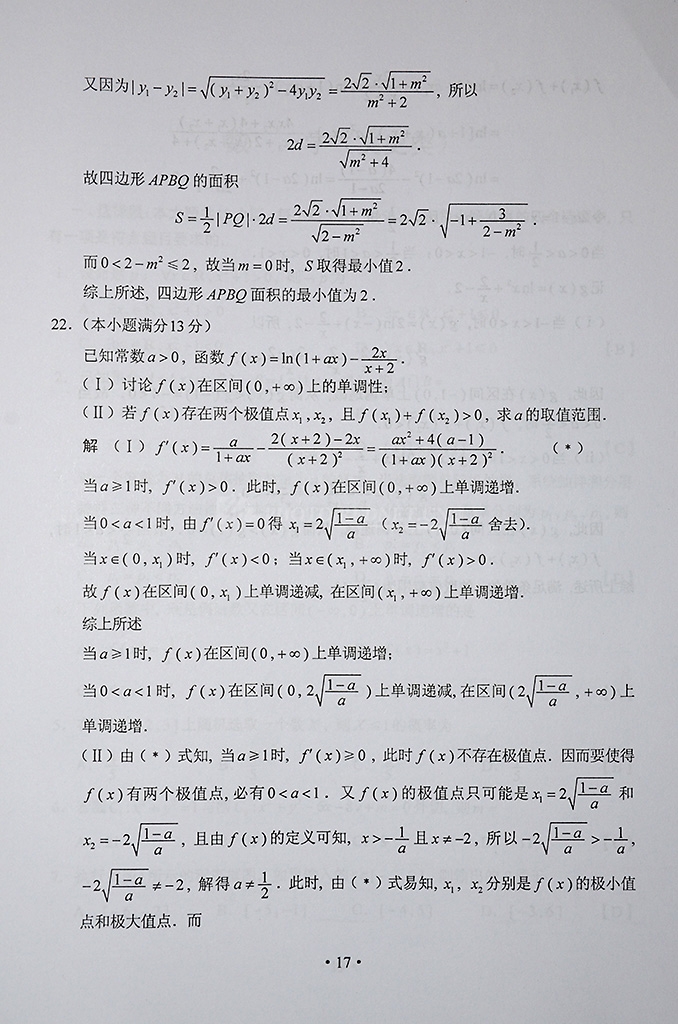 又因为|y₁-y₂|=√((y₁+y₂)²-4y₁y₂)=(2√2·√(1+m²))/(m²+2), 所以
2d=(2√2·√(1+m²))/√(m²+4).
故四边形APBQ的面积
S=1/2|PQ|·2d=(2√2·√(1+m²))/√(2-m²)=2√2·√(-1+3/(2-m²)).
而0<2-m²≤2, 故当m=0时, S取得最小值2.
综上所述, 四边形APBQ面积的最小值为2.
22. (本小题满分13分)
已知常数a>0, 函数f(x)=ln(1+ax)-2x/(x+2).
(Ⅰ)讨论f(x)在区间(0,+∞)上的单调性;
(Ⅱ)若f(x)存在两个极值点x₁,x₂, 且f(x₁)+f(x₂)>0, 求a的取值范围.
解 (Ⅰ) f′(x)=a/(1+ax)-(2(x+2)-2x)/(x+2)²=(ax²+4(a-1))/((1+ax)(x+2)²). (*)
当a≥1时, f′(x)>0. 此时, f(x)在区间(0,+∞)上单调递增.
当0<a<1时, 由f′(x)=0得 x₁=2√((1-a)/a) (x₂=-2√((1-a)/a)舍去).
当x∈(0,x₁)时, f′(x)<0; 当x∈(x₁,+∞)时, f′(x)>0.
故f(x)在区间(0,x₁)上单调递减, 在区间(x₁,+∞)上单调递增.
综上所述
当a≥1时, f(x)在区间(0,+∞)上单调递增;
当0<a<1时, f(x)在区间(0,2√((1-a)/a))上单调递减,在区间(2√((1-a)/a),+∞)上
单调递增.
(Ⅱ)由(*)式知, 当a≥1时, f′(x)≥0, 此时f(x)不存在极值点. 因而要使得
f(x)有两个极值点,必有0<a<1. 又f(x)的极值点只可能是x₁=2√((1-a)/a) 和
x₂=-2√((1-a)/a), 且由f(x)的定义可知, x>-1/a且x≠-2, 所以-2√((1-a)/a)>-1/a,
-2√((1-a)/a)≠-2, 解得a≠1/2. 此时, 由(*)式易知, x₁, x₂分别是f(x)的极小值
点和极大值点. 而
·17·